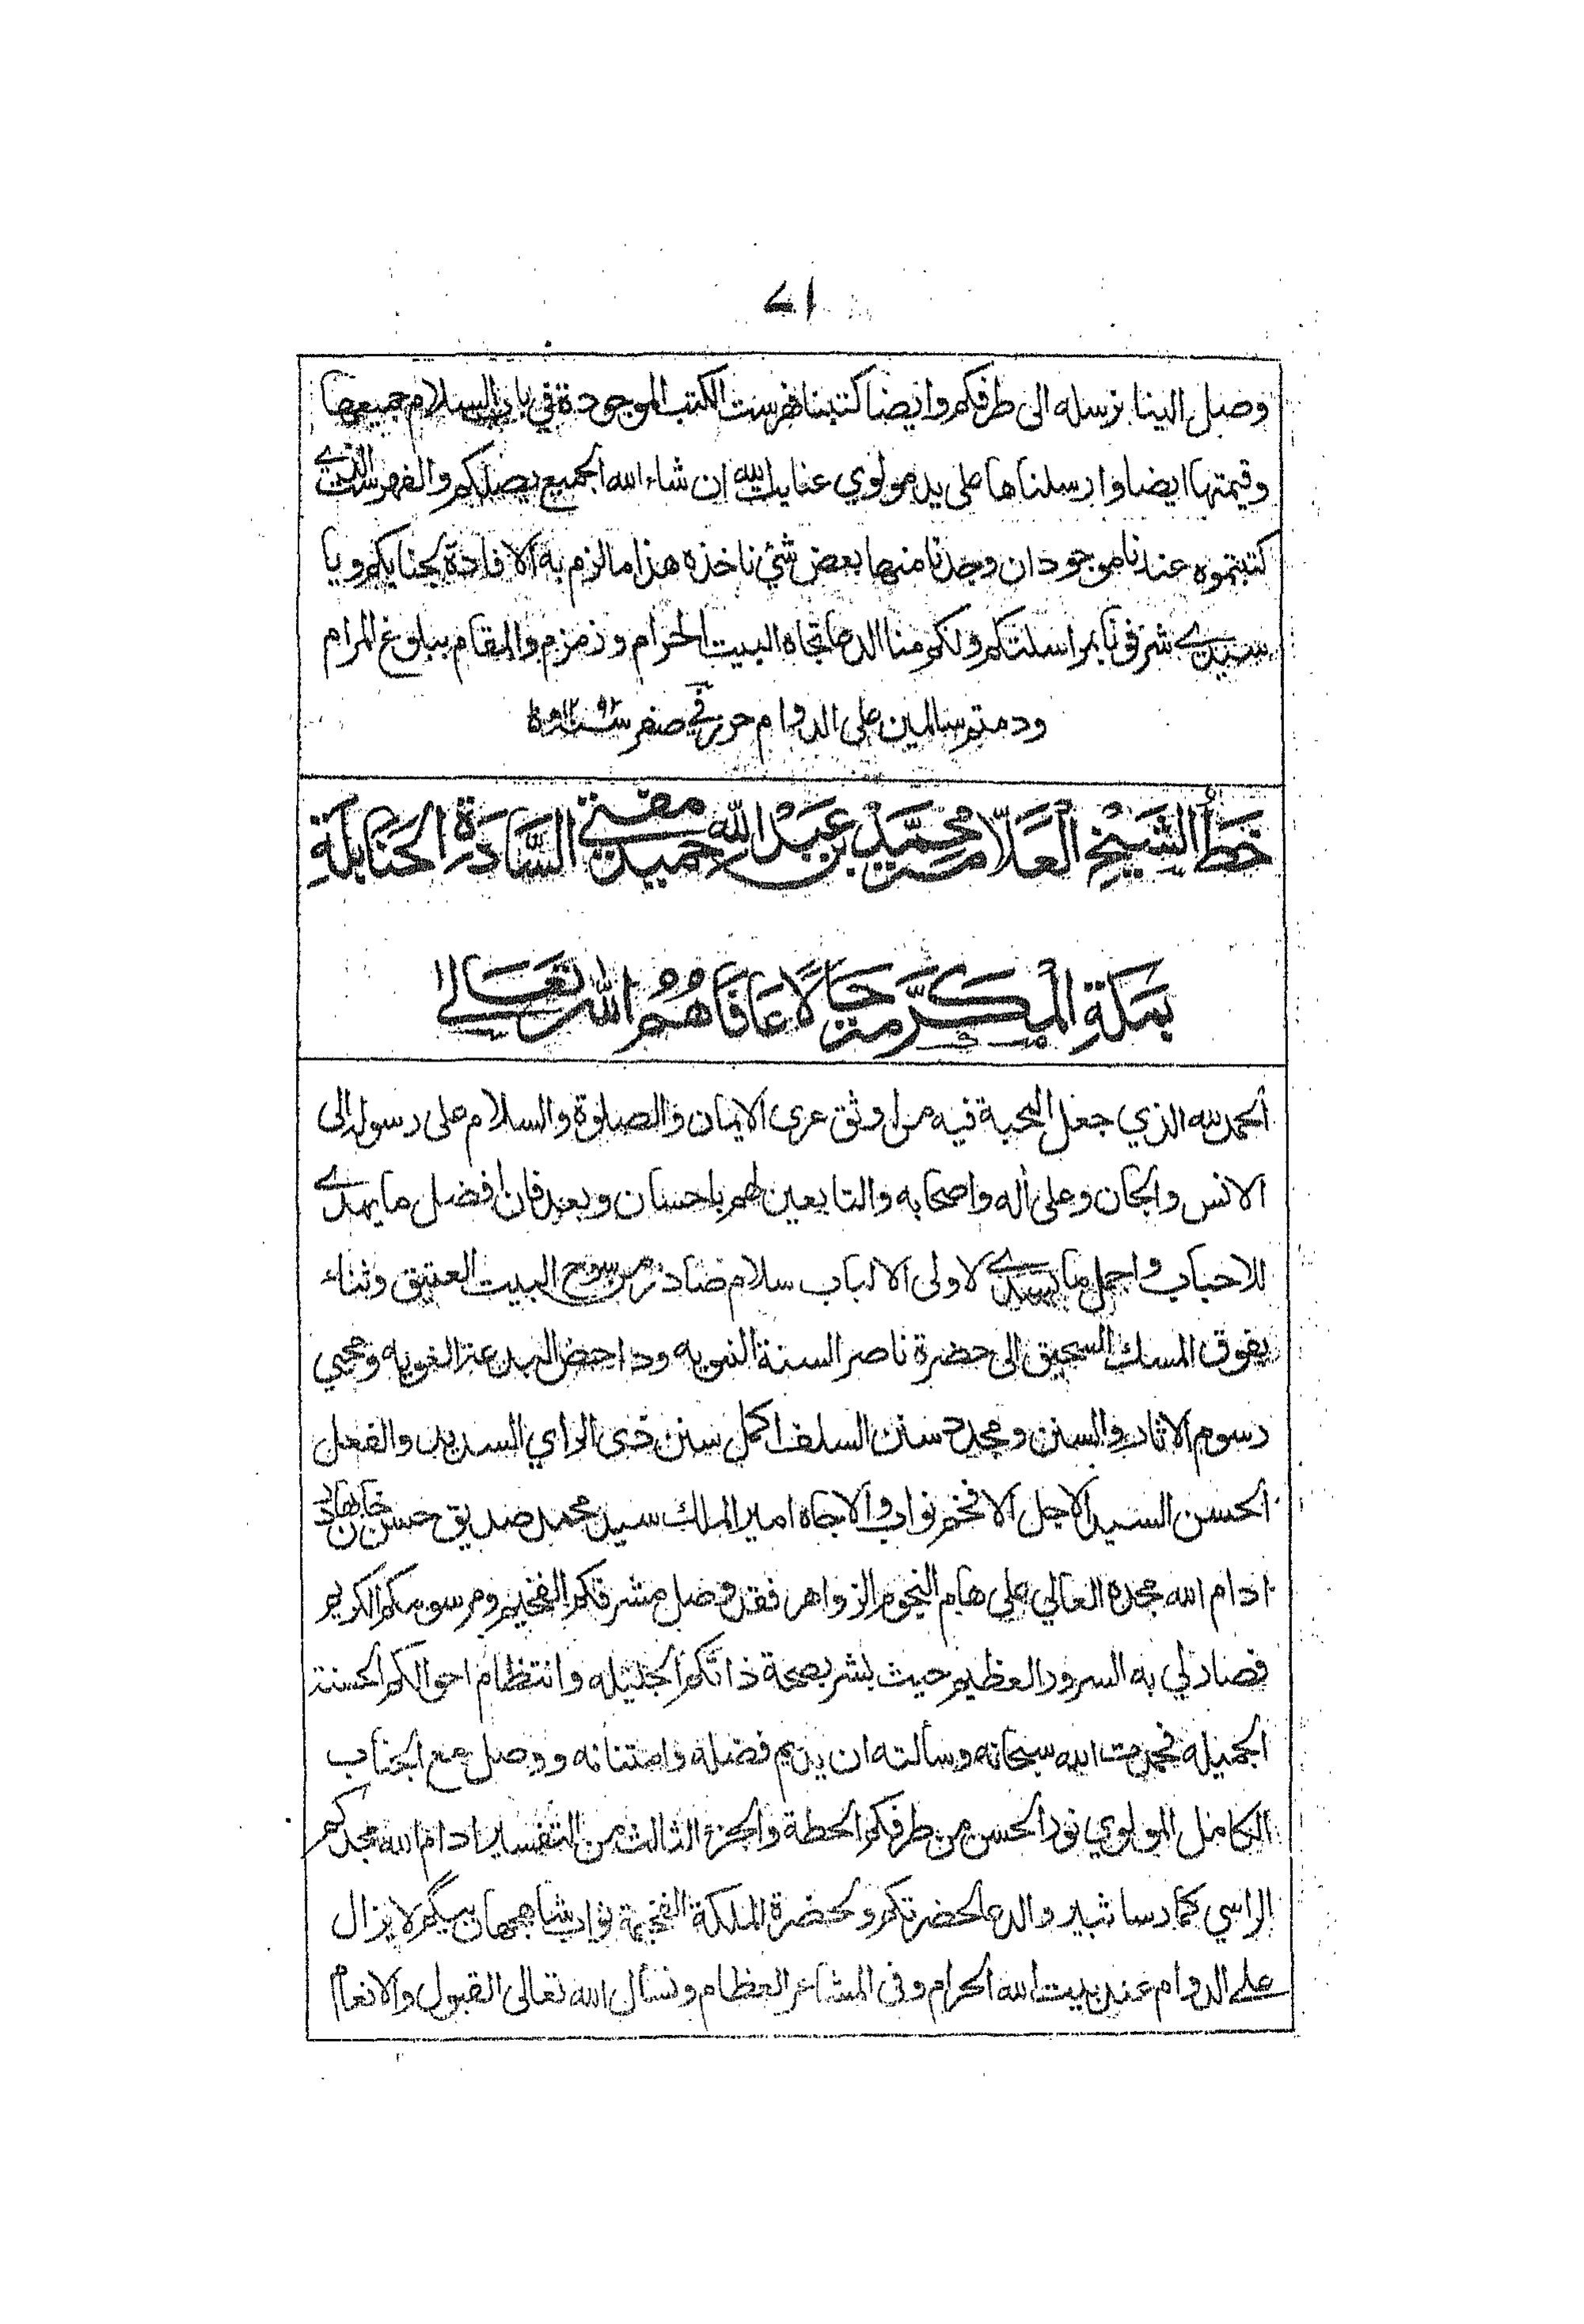 ٤١
وصل الينا نرسله الى طرفكم وايضا كتبنا فهرست الكتب الموجودة في باب السلام جميعها
وقيمتها ايضا وارسلناها على يد مولوي عنايت الله ان شاء الله الجميع يصلكم والفهرست الذي
كتبتموه عندنا موجود ان وجدنا منها بعض شئ ناخذه هذا ما لزم به الافادة لجنابكم ويا
سيدي شرفونا بمراسلتكم ولكم منا الدعا تجاه البيت الحرام وزمزم والمقام ببلوغ المرام
ودمتم سالمين على الدوام حرر في صفر
خط الشيخ العلامة محمد بن عبد الله حميد مفتي السادة الحنابلة
بمكة المكرمة حالا عافاهم الله تعالى
الحمد لله الذي جعل المحبة فيه من اوثق عرى الايمان والصلوة والسلام على رسوله الى
الانس والجان وعلى اله واصحابه والتابعين لهم باحسان وبعد فان افضل ما يهدى
للاحباب واجمل ما يسدى لاولى الالباب سلام صادر من سوح البيت العتيق وثناء
يفوق المسك السحيق الى حضرة ناصر السنة النبويه وداحض البدعة الغويه ومحيي
رسوم الاثار والسنن ومجدد سنن السلف اكمل سنن ذى الراي السديد والفعل
الحسن السيد الاجل الافخم نواب والاجاه امير الملك سيد محمد صديق حسن خان بهادر
ادام الله مجده العالي على هام النجوم الزواهر فقد وصل مشرفكم الفخيم ومرسومكم الكريم
فصار لي به السرور العظيم حيث بشر بصحة ذاتكم الجليله وانتظام احوالكم الحسنة
الجميله فحمدت الله سبحانه وسألته ان يديم فضله وامتنانه ووصل مع الجناب
الكامل المولوي نور الحسن من طرفكم الحطة والجزء الثالث من التفسير ادام الله مجدكم
الراسي كما رسا ثبير والدعا لحضرتكم ولحضرة الملكة الفخيمة نواب شاهجهان بيگم لا يزال
على الدوام عند بيت الله الحرام وفى المشاعر العظام ونسأل الله تعالى القبول والانعام